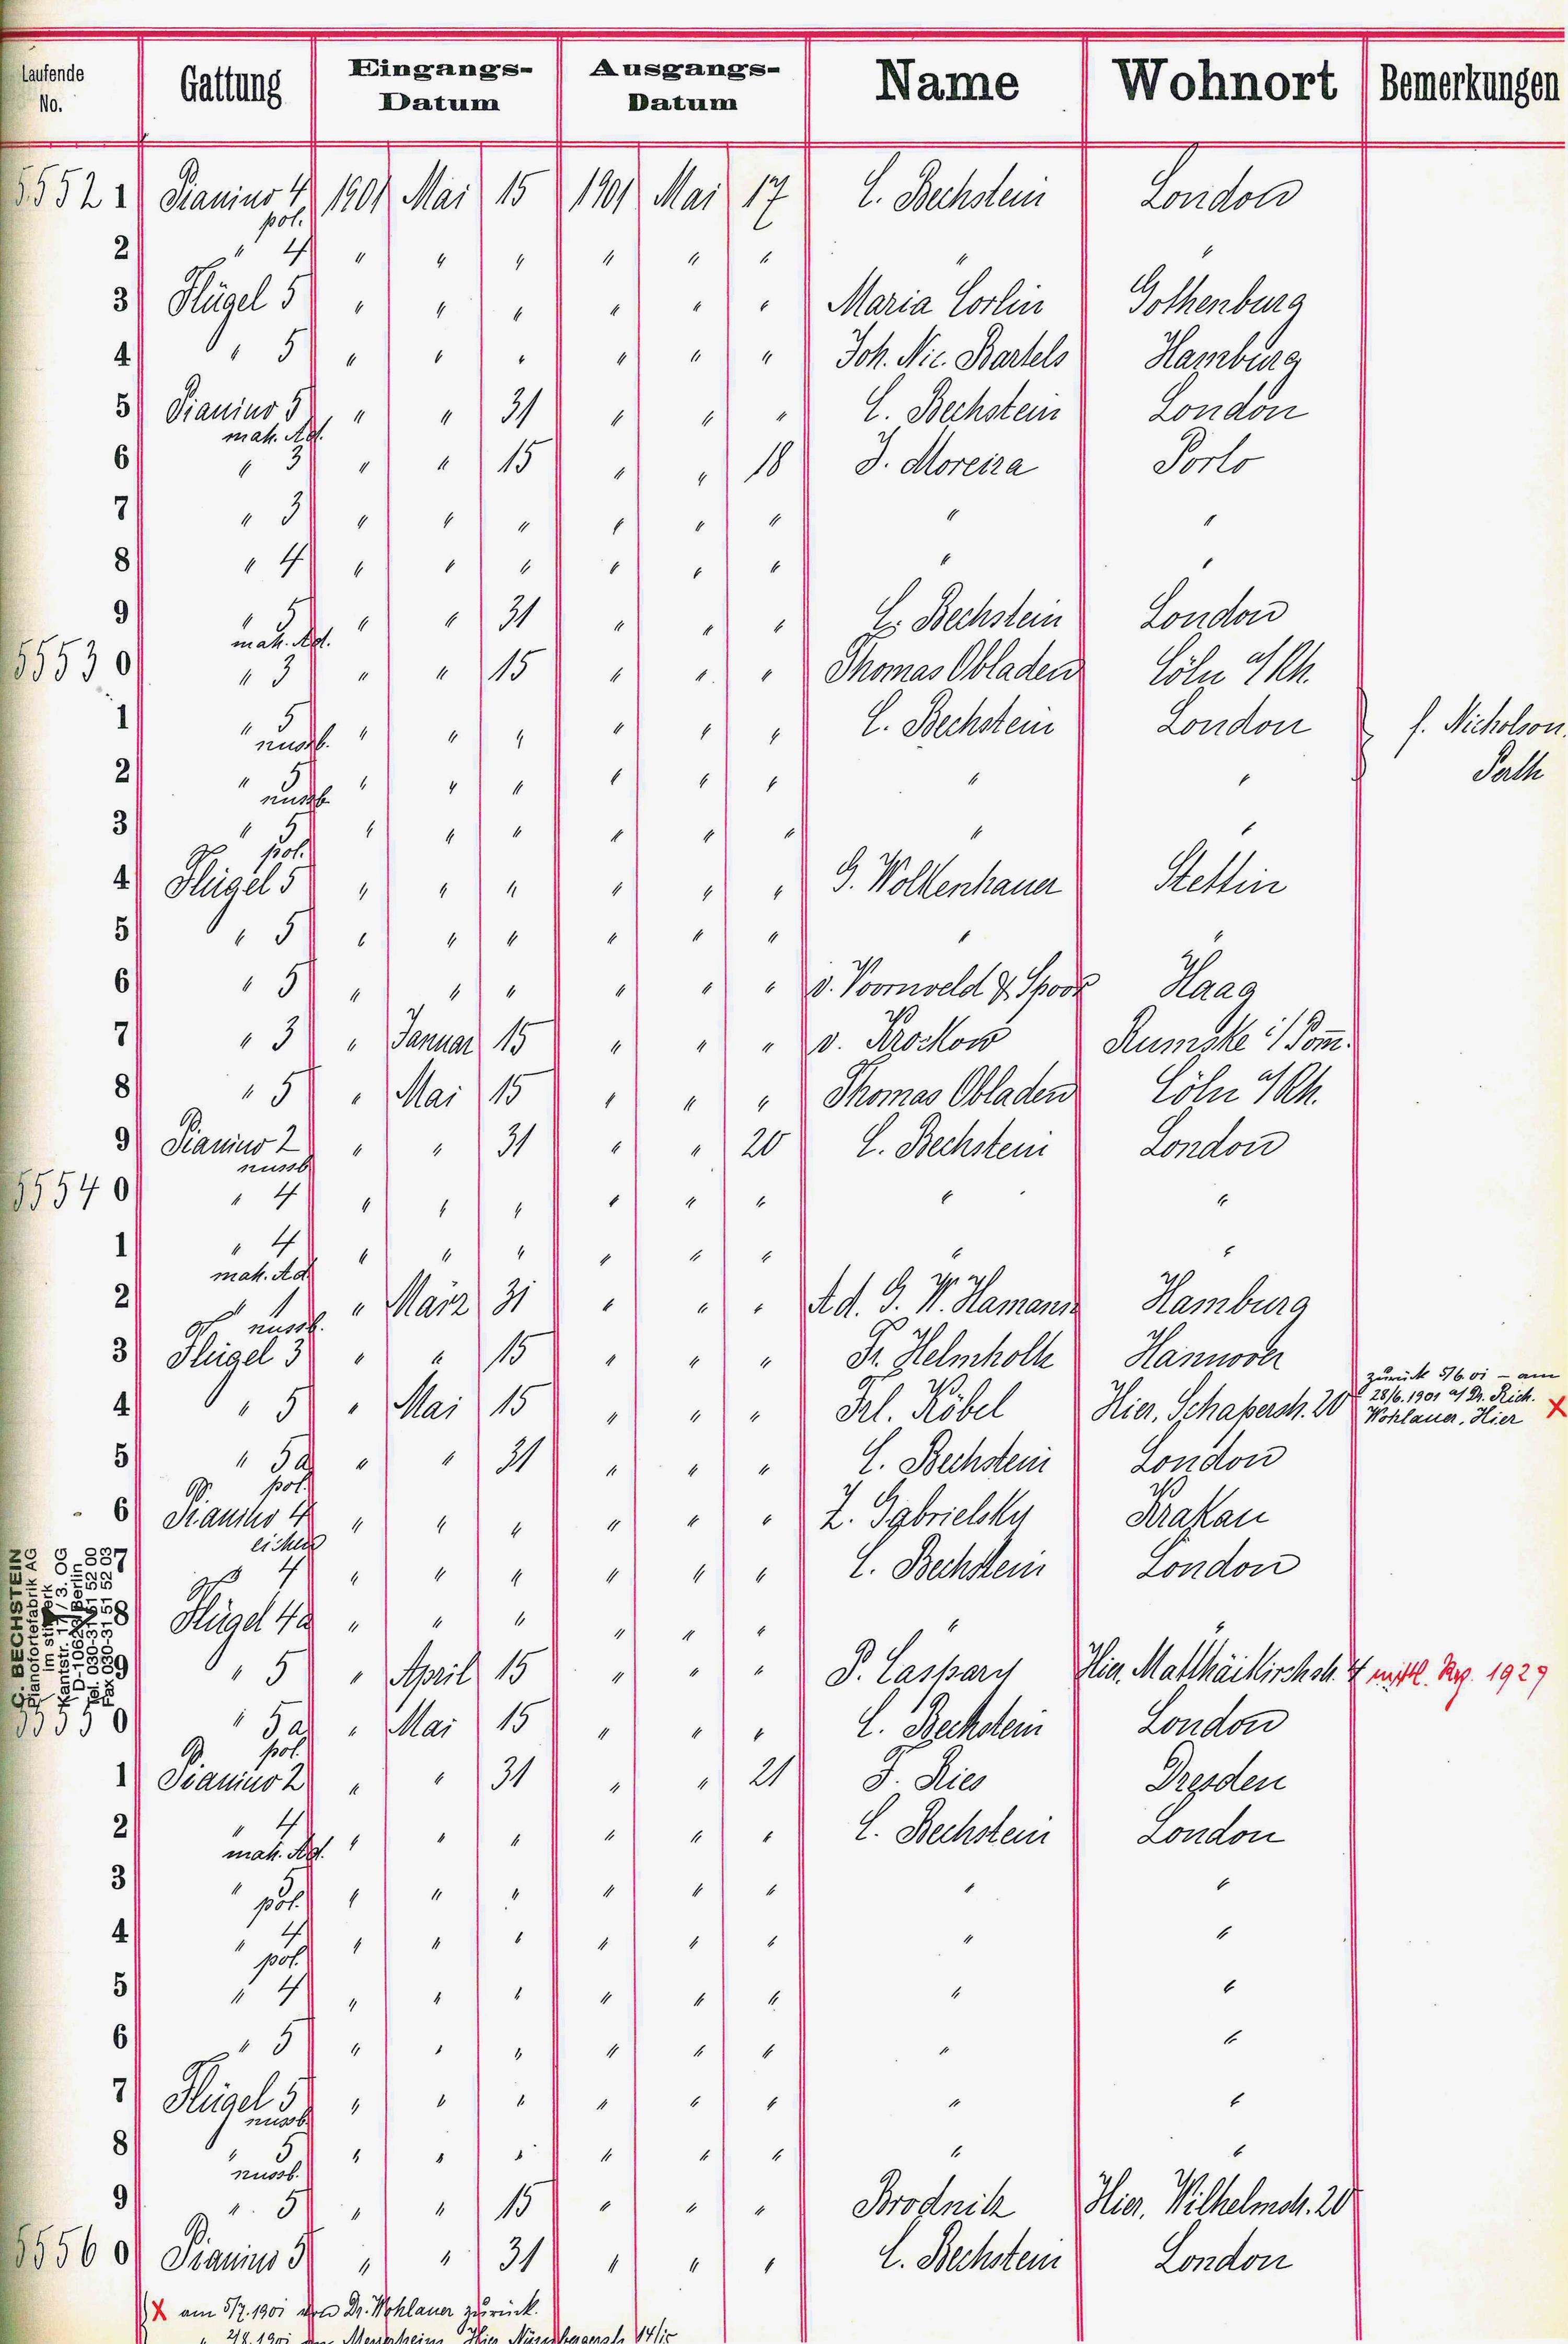 Laufende No. Gattung Eingangs-Datum Ausgangs-Datum Name Wohnort Bemerkungen
55521 Pianino 4 pol. 1901 Mai 15 1901 Mai 17 C. Bechstein London
2 " 4 " " " " " " " "
3 Flügel 5 " " " " " " Maria Corlin Gothenburg
4 " 5 " " " " " " Joh. Nic. Bartels Hamburg
5 Pianino 5 mah. Adl. " " 31 " " " C. Bechstein London
6 " 3 " " 15 " " 18 J. Moreira Porto
7 " 3 " " " " " " " "
8 " 4 " " " " " " " "
9 " 5 mah. Adl. " " 31 " " " C. Bechstein London
55530 " 3 " " 15 " " " Thomas Obladen Cöln a/Rh.
1 " 5 nussb. " " " " " " C. Bechstein London f. Nicholson.
2 " 5 nussb. " " " " " " " " Path
3 " 5 pol. " " " " " " " "
4 Flügel 5 " " " " " " G. Wolkenhauer Stettin
5 " 5 " " " " " " " "
6 " 5 " " " " " " v. Voornveld & Spoor Haag
7 " 3 " Januar 15 " " " v. Krockow Rumske i/Pom.
8 " 5 " Mai 15 " " " Thomas Obladen Cöln a/Rh.
9 Pianino 2 nussb " " 31 " " 20 C. Bechstein London
55540 " 4 " " " " " " " "
1 " 4 mah. Adl " " " " " " " "
2 " 1 nussb. " März 31 " " " Ad. G. W. Hamann Hamburg
3 Flügel 3 " " 15 " " " Fr. Helmholz Hannover
zurück 5/6 01 – am
4 " 5 " Mai 15 " " " Frl. Köbel Hier, Schaperstr. 20 28/6. 1901 a/ Dr. Rich. X
Wohlauer, Hier
5 " 5a pol. " " 31 " " " C. Bechstein London
6 Pianino 4 eichen " " " " " " Z. Gabrielsky Krakau
7 " 4 " " " " " " C. Bechstein London
8 Flügel 4a " " " " " " " "
9 " 5 " April 15 " " " P. Caspary Hier, Matthäikirchstr. 4 1929
55550 " 5a pol. " Mai 15 " " " C. Bechstein London
1 Pianino 2 " " 31 " " 21 F. Ries Dresden
2 " 4 mah. Adl. " " " " " " C. Bechstein London
3 " pol. " " " " " " " "
4 " 4 pol. " " " " " " " "
5 " 4 " " " " " " " "
6 " 5 " " " " " " " "
7 Flügel 5 nussb " " " " " " " "
8 " 5 nussb. " " " " " " " "
9 " 5 " " 15 " " " Brodnitz Hier, Wilhelmstr. 20
55560 Pianino 5 " " 31 " " " C. Bechstein London
X am 5/7. 1901 von Dr. Wohlauer zurück.
C. BECHSTEIN
Pianofortefabrik AG